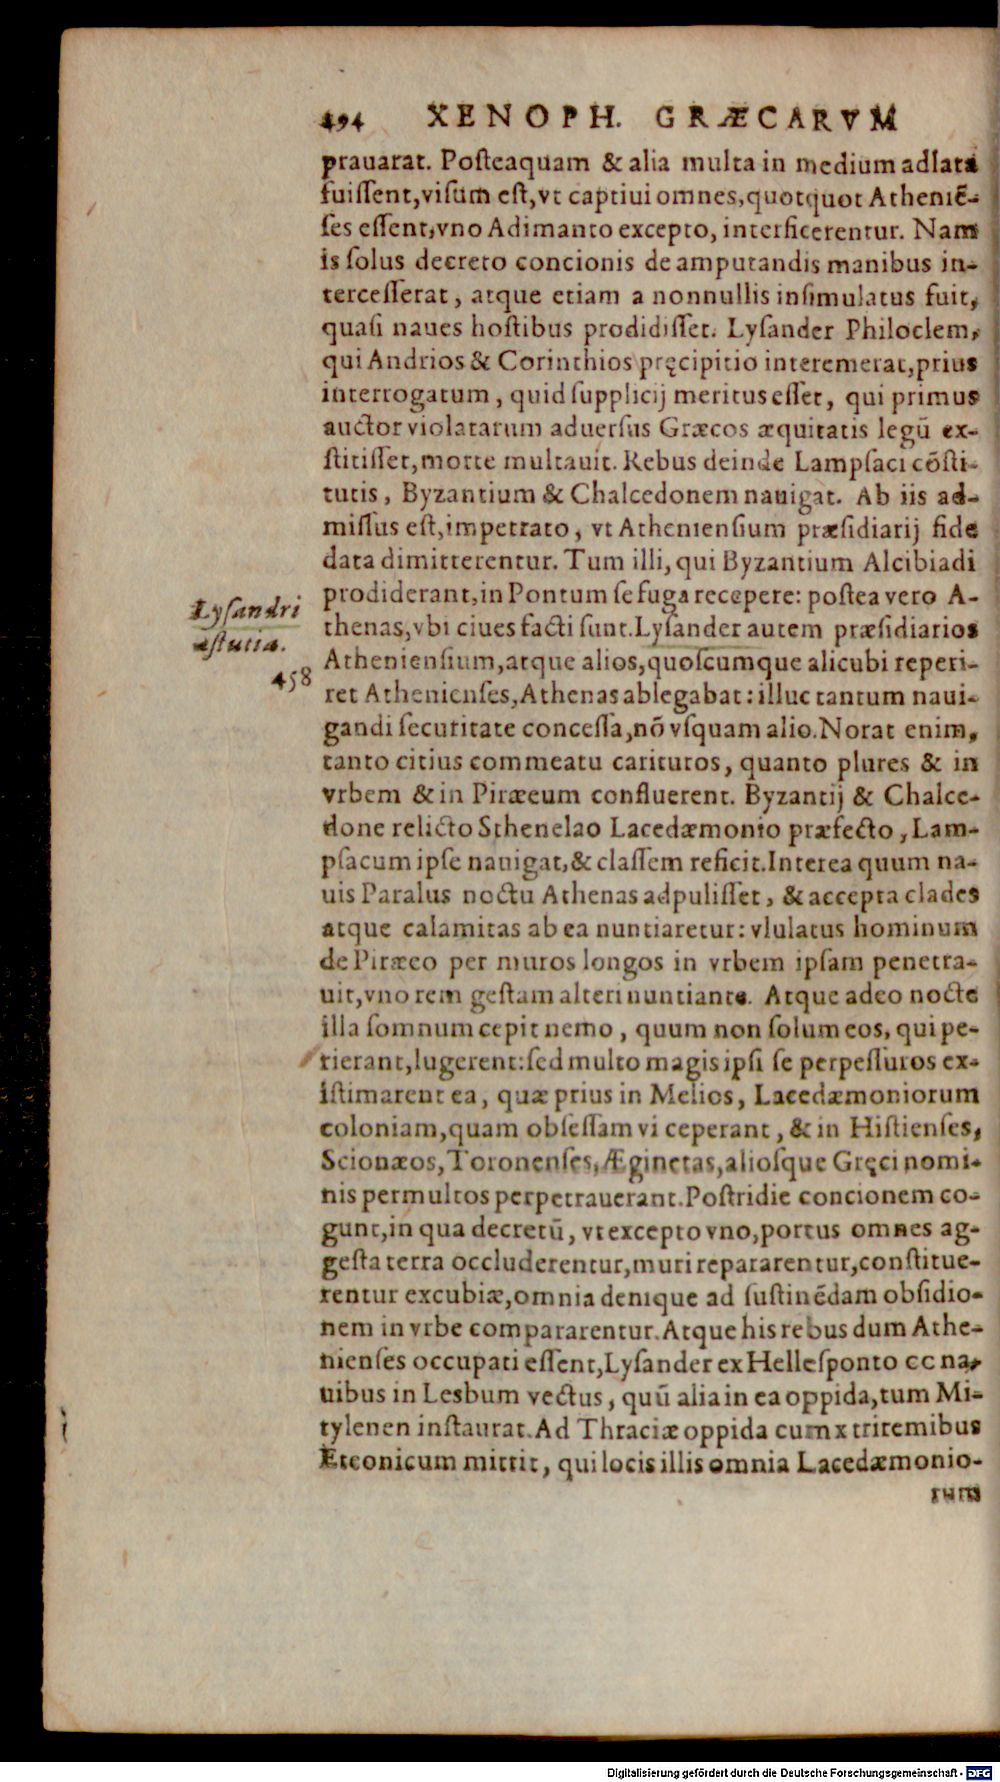 494 XENOPH. GRÆCARVM
prauarat. Poſteaquam & alia multa in medium adlata
fuiſſent, viſum eſt, vt captiui omnes, quotquot Atheniē-
ſes eſſent, vno Adimanto excepto, interficerentur. Nam
is ſolus decreto concionis de amputandis manibus in-
terceſſerat, atque etiam a nonnullis inſimulatus fuit,
quaſi naues hoſtibus prodidiſſet. Lyſander Philoclem,
qui Andrios & Corinthios pręcipitio interemerat, prius
interrogatum, quid ſupplicij meritus eſſet, qui primus
auctor violatarum aduerſus Græcos æquitatis legū ex-
ſtitiſſet, morte multauit. Rebus deinde Lampſaci cōſti-
tutis, Byzantium & Chalcedonem nauigat. Ab iis ad-
miſſus eſt, impetrato, vt Athenienſium præſidiarij fide
data dimitterentur. Tum illi, qui Byzantium Alcibiadi
prodiderant, in Pontum ſe fuga recepere: poſtea vero A-
thenas, vbi ciues facti ſunt. Lyſander autem præſidiarios
Athenienſium, atque alios, quoſcumque alicubi reperi-
ret Athenienſes, Athenas ablegabat: illuc tantum naui-
gandi ſecuritate conceſſa, nō vſquam alio. Norat enim,
tanto citius commeatu carituros, quanto plures & in
vrbem & in Piræeum confluerent. Byzantij & Chalce-
done relicto Sthenelao Lacedæmonio præfecto, Lam-
pſacum ipſe nauigat, & claſſem reficit. Interea quum na-
uis Paralus noctu Athenas adpuliſſet, & accepta clades
atque calamitas ab ea nuntiaretur: vlulatus hominum
de Piræeo per muros longos in vrbem ipſam penetra-
uit, vno rem geſtam alteri nuntiante. Atque adeo nocte
illa ſomnum cepit nemo, quum non ſolum eos, qui pe-
rierant, lugerent: ſed multo magis ipſi ſe perpeſſuros ex-
iſtimarent ea, quæ prius in Melios, Lacedæmoniorum
coloniam, quam obſeſſam vi ceperant, & in Hiſtienſes,
Scionæos, Toronenſes, Æginetas, alioſque Gręci nomi-
nis permultos perpetrauerant. Poſtridie concionem co-
gunt, in qua decretū, vt excepto vno, portus omnes ag-
geſta terra occluderentur, muri repararentur, conſtitue-
rentur excubiæ, omnia denique ad ſuſtinēdam obſidio-
nem in vrbe compararentur. Atque his rebus dum Athe-
nienſes occupati eſſent, Lyſander ex Helleſponto cc na-
uibus in Lesbum vectus, quū alia in ea oppida, tum Mi-
tylenen inſtaurat. Ad Thraciæ oppida cum x triremibus
Eteonicum mittit, qui locis illis omnia Lacedæmonio-
rum
Lyſandri
aſtutia.
458
Digitalisierung gefördert durch die Deutsche Forschungsgemeinschaft - DFG